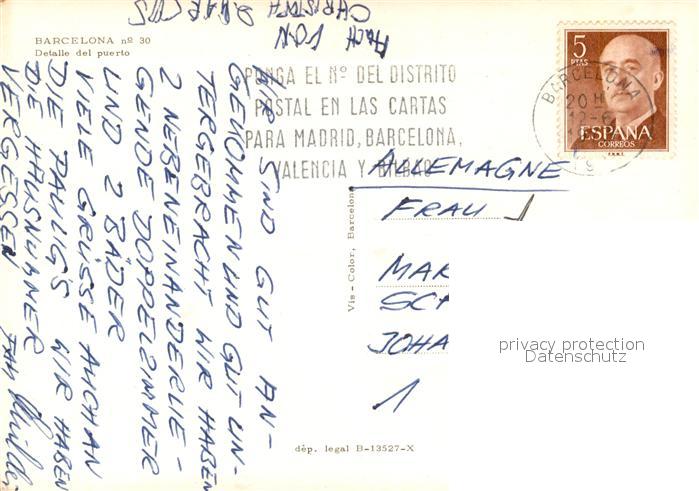 BARCELONA nº 30
Detalle del puerto
AUCH VON
CHRISTOPH & MARCUS
PONGA EL Nº DEL DISTRITO
POSTAL EN LAS CARTAS
PARA MADRID, BARCELONA,
VALENCIA Y BILBAO
BARCELONA
20 H
12-6
5
PTAS
ESPAÑA
CORREOS
F.N.M.T.
WIR SIND GUT AN-
GEKOMMEN UND GUT UN-
TERGEBRACHT WIR HABEN
2 NEBENEINANDERLIE-
GENDE DOPPELZIMMER
UND 2 BÄDER
VIELE GRÜSSE AUCH AN
DIE PAULIGS WIR HABEN
DIE HAUSNUMMER
VERGESSEN
FAM
ALLEMAGNE
FRAU
MAR
SCH
JOHA
1
Vis - Color, Barcelona
dép. legal B-13527-X
privacy protection
Datenschutz